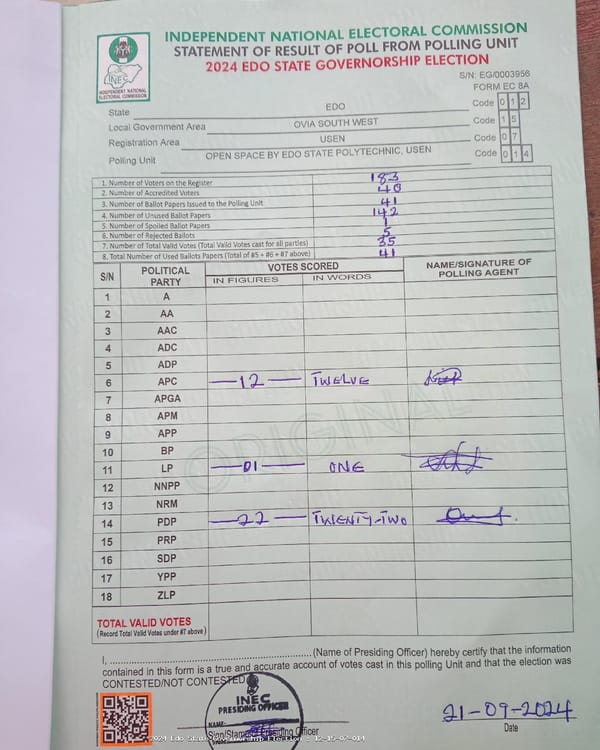 INDEPENDENT NATIONAL ELECTORAL COMMISSION
STATEMENT OF RESULT OF POLL FROM POLLING UNIT
2024 EDO STATE GOVERNORSHIP ELECTION
INEC
INDEPENDENT NATIONAL
ELECTORAL COMMISSION
S/N: EG/0003956
FORM EC 8A
State EDO Code 0 1 2
Local Government Area OVIA SOUTH WEST Code 1 5
Registration Area USEN Code 0 7
Polling Unit OPEN SPACE BY EDO STATE POLYTECHNIC, USEN Code 0 1 4
1. Number of Voters on the Register 183
2. Number of Accredited Voters 40
3. Number of Ballot Papers Issued to the Polling Unit 41
4. Number of Unused Ballot Papers 142
5. Number of Spoiled Ballot Papers 1
6. Number of Rejected Ballots 5
7. Number of Total Valid Votes (Total Valid Votes cast for all parties) 35
8. Total Number of Used Ballots Papers (Total of #5 + #6 + #7 above) 41
S/N POLITICAL PARTY VOTES SCORED NAME/SIGNATURE OF POLLING AGENT
IN FIGURES IN WORDS
1 A
2 AA
3 AAC
4 ADC
5 ADP
6 APC —12— TWELVE
7 APGA
8 APM
9 APP
10 BP
11 LP —01— ONE
12 NNPP
13 NRM
14 PDP —22— TWENTY-TWO
15 PRP
16 SDP
17 YPP
18 ZLP
ORIGINAL
TOTAL VALID VOTES
(Record Total Valid Votes under #7 above)
I, ............................................................(Name of Presiding Officer) hereby certify that the information
contained in this form is a true and accurate account of votes cast in this polling Unit and that the election was
CONTESTED/NOT CONTESTED
INEC
PRESIDING OFFICER
NAME:
Sign/Stamp Presiding Officer
21-09-2024
Date
2024 Edo State Governorship Election - 12-15-07-014